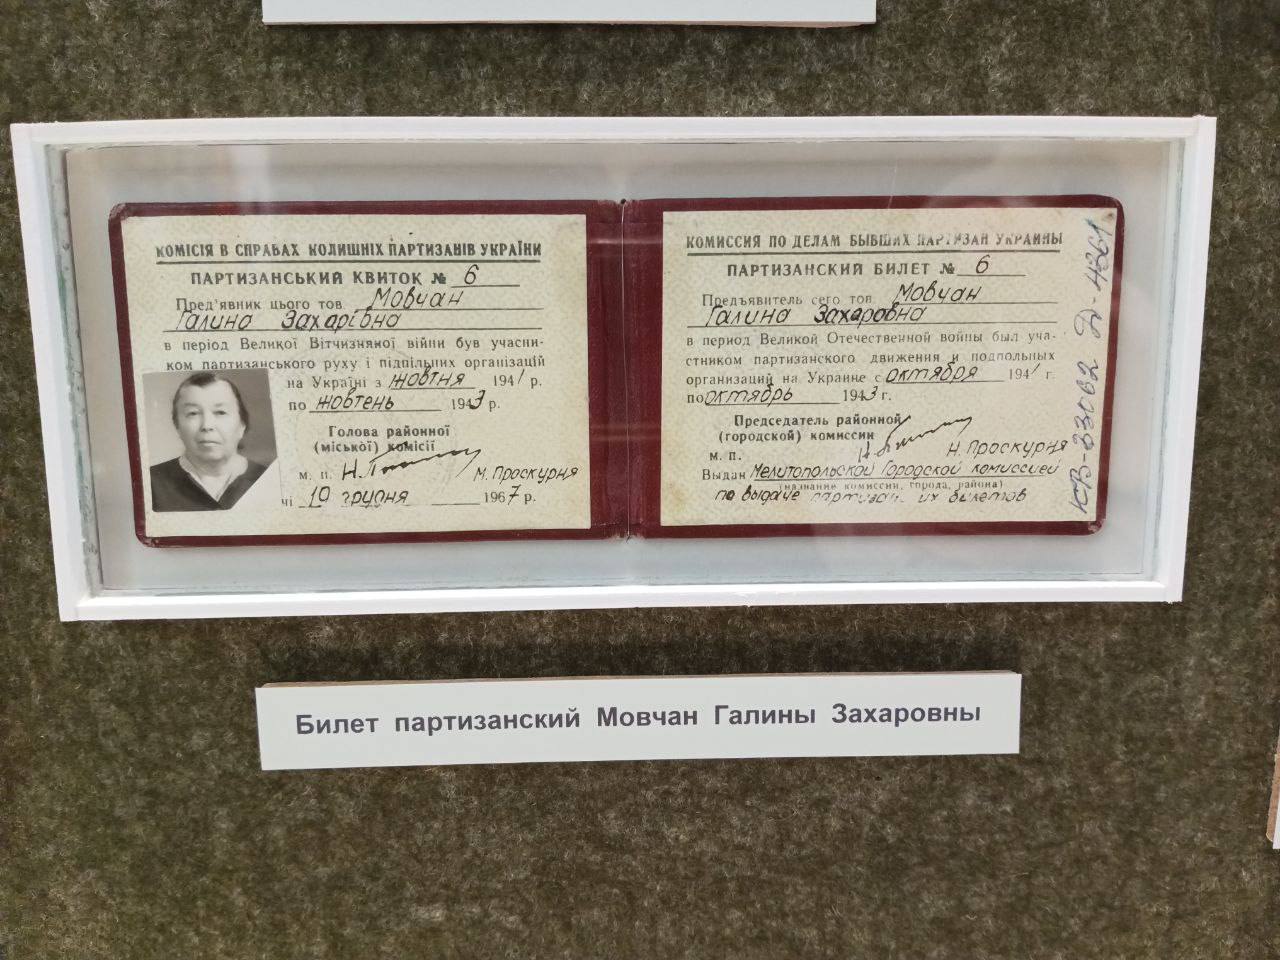 КОМІСІЯ В СПРАВАХ КОЛИШНІХ ПАРТИЗАНІВ УКРАЇНИ
ПАРТИЗАНСЬКИЙ КВИТОК № 6
Пред'явник цього тов Мовчан
Галина Захарівна
в період Великої Вітчизняної війни був учасни-
ком партизанського руху і підпільних організацій
на Україні з жовтня 1941 р.
по жовтень 1943 р.
Голова районної
(міської) комісії
м. п. М. Проскурня
19 грудня 1967 р.
КОМИССИЯ ПО ДЕЛАМ БЫВШИХ ПАРТИЗАН УКРАИНЫ
ПАРТИЗАНСКИЙ БИЛЕТ № 6
Предъявитель сего тов Мовчан
Галина Захаровна
в период Великой Отечественной войны был уча-
стником партизанского движения и подпольных
организаций на Украине с октября 1941 г.
по октябрь 1943 г.
Председатель районной
(городской) комиссии
м. п. Н. Проскурня
Выдан Мелитопольской Городской комиссией
(название комиссии, города, района)
по выдаче партизанских билетов
КВ-23062 Д-4361
Билет партизанский Мовчан Галины Захаровны